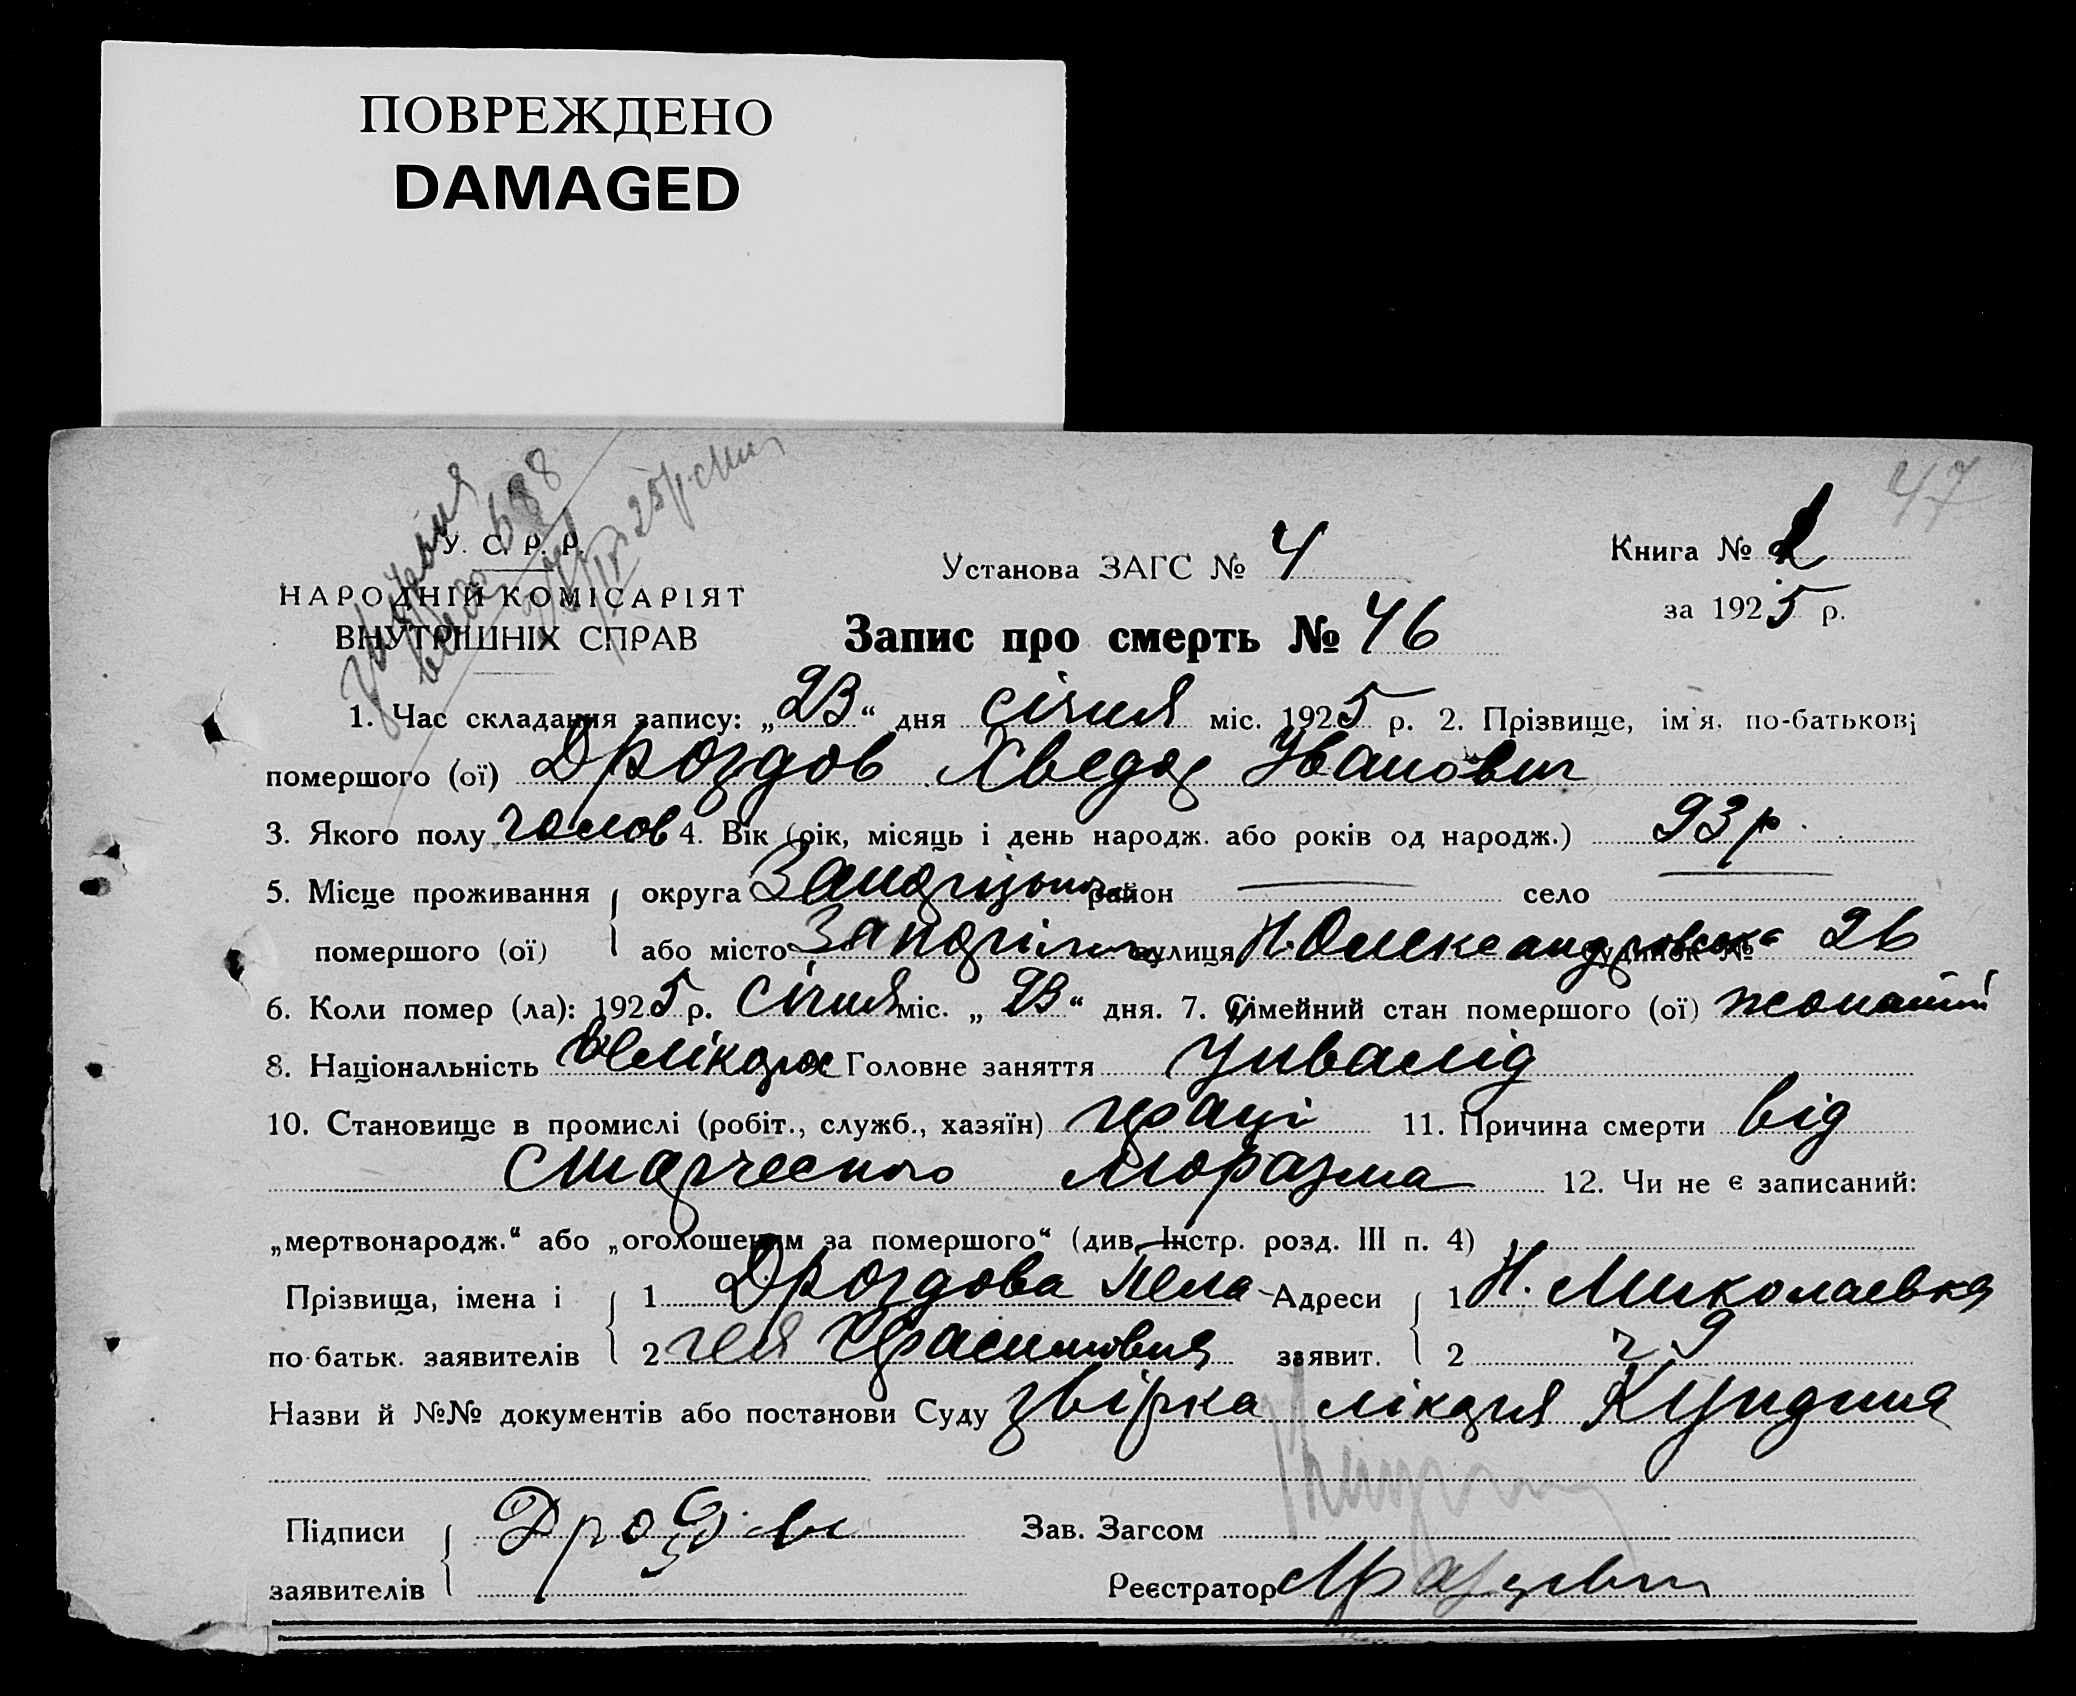 ПОВРЕЖДЕНО
DAMAGED
47
У. С. Р. Р.
НАРОДНІЙ КОМІСАРІЯТ
ВНУТРІШНІХ СПРАВ
Установа ЗАГС № 4
Книга № 2
за 1925 р.
Запис про смерть № 46
1. Час складання запису: „23“ дня січня міс. 1925 р. 2. Прізвище, ім'я, по-батькові
помершого (ої) Дроздов Хведор Іванович
3. Якого полу чолов 4. Вік (рік, місяць і день народж. або років од народж.) 93 р.
5. Місце проживання округа район — село —
помершого (ої) або місто вулиця Н. Олександровська будинок № 26
6. Коли помер (ла): 1925 р. січня міс. „23“ дня. 7. Сімейний стан помершого (ої) жонатий
8. Національність Головне заняття Інвалід
10. Становище в промислі (робіт., служб., хазяїн) праці 11. Причина смерти від
старческого моразма 12. Чи не є записаний:
„мертвонародж.“ або „оголошеним за помершого“ (див. Інстр. розд. III п. 4)
Прізвища, імена і 1 Дроздова Пела- Адреси 1 Н. Миколаевка
по-батьк. заявителів 2 гея Герасимовна заявит. 2 9
Назви й №№ документів або постанови Суду лікаря
Підписи Зав. Загсом
заявителів Реєстратор